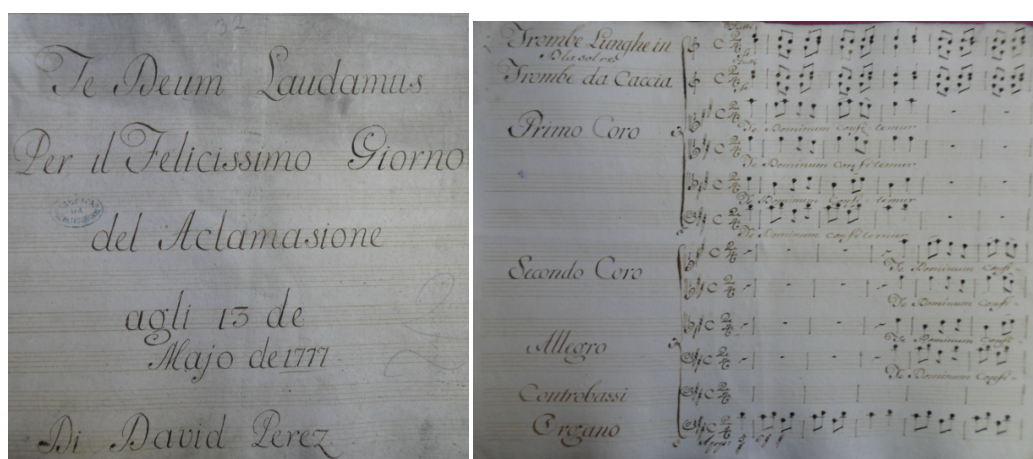 Te Deum Laudamus
Per il Felicissimo Giorno
del Aclamasione
agli 13 de
Majo de 1777
Di David Perez
Trombe Lunghe in
Dlasolre
Trombe da Caccia
Primo Coro
Te Dominum confitemur
Te Dominum confitemur
Te Dominum confitemur
Te Dominum confitemur
Secondo Coro
Te Dominum confi-
Te Dominum confi-
Allegro
Te Dominum confi-
Te Dominum confi-
Controbassi
Organo